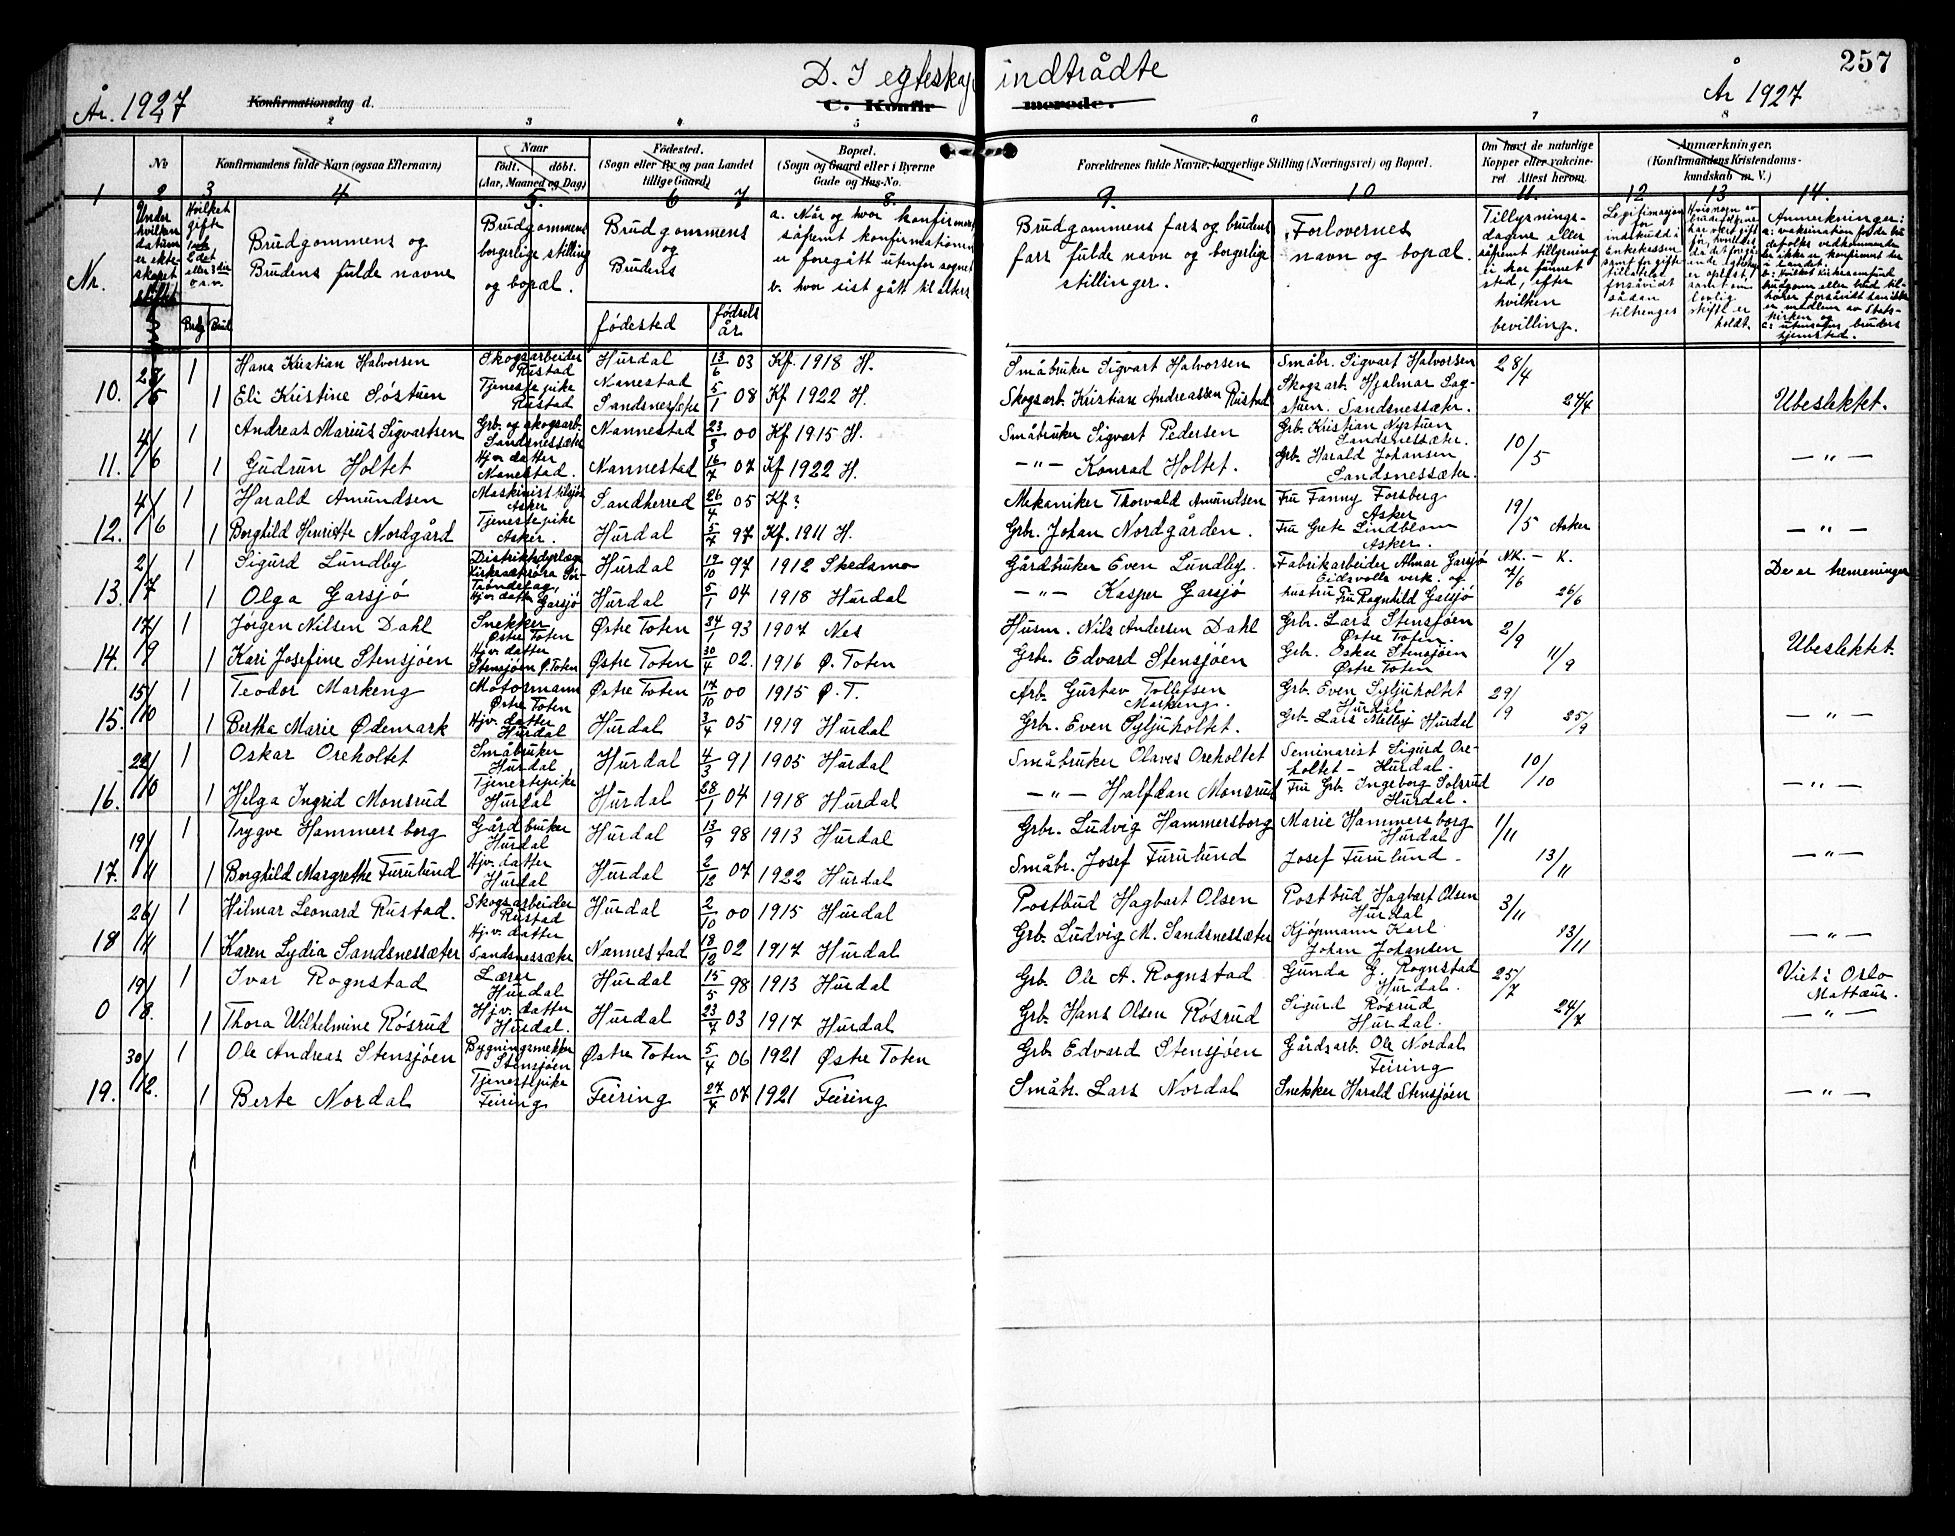 257
D. I egteskap indtrådte
År. 1927
Konfirmationsdag d.
C. Konfirmerede.
År 1927
No
Konfirmandens fulde Navn (ogsaa Efternavn)
Naar
født. døbt.
(Aar, Maaned og Dag)
Fødested.
(Sogn eller By og paa Landet
tillige Gaard)
Bopæl.
(Sogn og Gaard eller i Byerne
Gade og Hus-No.
Forældrenes fulde Navne, borgerlige Stilling (Næringsvei) og Bopæl.
Om havt de naturlige
Kopper eller vakcine-
ret Attest herom.
Anmærkninger.
(Konfirmandens Kristendoms-
kundskab m. V.)
1 2 3 4 5. 6 7 8. 9. 10 11. 12 13 14.
Nr.
Under hvilken datum er ekteskapet stiftet
Hvilket gifte
Brudgommens og
Brudens fulde navne
Brudgommens
borgerlige stilling
og bopæl.
Brudgommens
og
Brudens
fødested
fødsels
år
a. Når og hvor konfirmert
såfremt konfirmationen
er foregått utenfor sognet
b. hvor sist gått til alters
Brudgommens fars og brudens
fars fulde navn og borgerlige
stillinger.
Forlovernes
navn og bopæl.
Tillysnings-
dagene eller
såfremt tillysning
ei har funnet
sted, efter
hvilken
bevilling.
Anmerkninger:
10. 28/5 1 Hans Kristian Halvorsen Skogsarbeider Rustad Hurdal 13/6 03 Kf. 1918 H. Småbruker Sigvart Halvorsen Småbr. Sigvart Halvorsen 28/4
1 Eli Kristine Søstuen Tjenestepike Rustad Nanestad Sandsnesæter 5/1 08 Kf 1922 H. Skogsarb. Kristian Andreassen Rustad Skogsarb. Hjalmar Sagstuen. Sandsnessæter. 24/4 Ubeslektet.
11. 4/6 1 Andreas Marius Sigvartsen Grb. og skogsarb. Sandsnessæter Nannestad 23/3 00 Kf 1915 H. Småbruker Sigvart Pedersen Grb. Kristian Nystuen Sandsnessæter. 10/5
1 Gudrun Holtet Hjv. datter Nanestad. Nannestad 16/7 07 Kf 1922 H. —"— Konrad Holtet. Grb. Harald Johansen Sandsnessæter. —"—
12. 4/6 1 Harald Amundsen Maskinist Asker Sandherred 26/4 05 Kf? Mekaniker Thorvald Amundsen Fru Fanny Forsberg Asker 19/5 Asker
1 Borghild Henriette Nordgård Tjenestepike Asker. Hurdal 5/4 97 Kf. 1911 H. Grb. Johan Nordgården. Fru Grete Lindblom Asker. —"—
13. 2/7 1 Sigurd Lundby Distriktsdyrlæge Kirksæterøra Sør-Trøndelag Hurdal 19/10 97 1912 Skedsmo Gårdbruker Even Lundby. Fabrikarbeider Almar Garsjø Eidsvolls verk. og NK. — K. 2/6 De er tremeninger
1 Olga Garsjø Hjv. datter Garsjø Hurdal 5/1 04 1918 Hurdal —"— Kasper Garsjø hustru Fru Ragnhild Garsjø 26/6
14. 17/9 1 Jørgen Nilsen Dahl Snekker Østre Toten Østre Toten 24/1 93 1907 Nes Husm. Nils Andersen Dahl Grb. Lars Stensjøen Østre Toten. 2/9
1 Kari Josefine Stensjøen Hjv. datter Stensjøen Ø. Toten Østre Toten 30/4 02. 1916 Ø. Toten Grbr. Edvard Stensjøen Grb. Oskar Stensjøen Østre Toten 11/9 Ubeslektet.
15. 15/10 1 Teodor Markeng Motormann Østre Toten Østre Toten 17/10 00 1915 Ø. T. Arb. Gustav Tollefsen Markeng. Grb. Even Syljuholtet Hurdal. 29/9
1 Bertha Marie Ødemark Hjv. datter Hurdal Hurdal 3/4 05 1919 Hurdal Grb. Even Syljuholtet. Grb. Lars Melby Hurdal 25/9 —"—
16. 22/10 1 Oskar Oreholtet Småbruker Hurdal Hurdal 4/3 91 1905 Hurdal Småbruker Olaves Oreholtet Seminarist Sigurd Oreholtet – Hurdal. 10/10
1 Helga Ingrid Monsrud Tjenestepike Hurdal Hurdal 28/1 04 1918 Hurdal —"— Halfdan Monsrud Fru Grb. Ingeborg Solsrud Hurdal. —"—
17. 19/11 1 Trygve Hammersborg Gårdbruker Hurdal Hurdal 13/9 98 1913 Hurdal Grbr. Ludvig Hammersborg Marie Hammersborg Hurdal 1/11
1 Borghild Margrethe Furulund Hjv. datter Hurdal Hurdal 2/12 07 1922 Hurdal Småbr. Josef Furulund Josef Furulund. 13/11 —"—
18 26/11 1 Hilmar Leonard Rustad. Skogsarbeider Rustad Hurdal 2/10 00 1915 Hurdal Postbud Hagbart Olsen Postbud Hagbart Olsen Hurdal 3/11
1 Karen Lydia Sandsnessæter Hjv. datter Sandsnessæter Nannestad 18/12 02 1917 Hurdal Grb. Ludvig M. Sandsnessæter Kjøpmann Karl Johan Johansen 13/11 —"—
0 19/8. 1 Ivar Rognstad Lærer Hurdal Hurdal 15/5 98 1913 Hurdal Grb. Ole A. Rognstad Gunda G. Rognstad Hurdal. 25/7 Viet i Oslo Mattæus.
1 Thora Wilhelmine Røsrud Hjv. datter Hurdal. Hurdal 23/4 03 1917 Hurdal Grb. Hans Olsen Røsrud Sigurd Røsrud Hurdal. 24/7 —"—
19. 30/12. 1 Ole Andreas Stensjøen Stensjøen Østre Toten 5/4 06 1921 Østre Toten Grb. Edvard Stensjøen Gårdsarb. Ole Nordal Feiring
1 Berte Nordal Tjenestepike Feiring Feiring 27/4 07 1921 Feiring Småbr. Lars Nordal Snekker Harald Stensjøen —"—